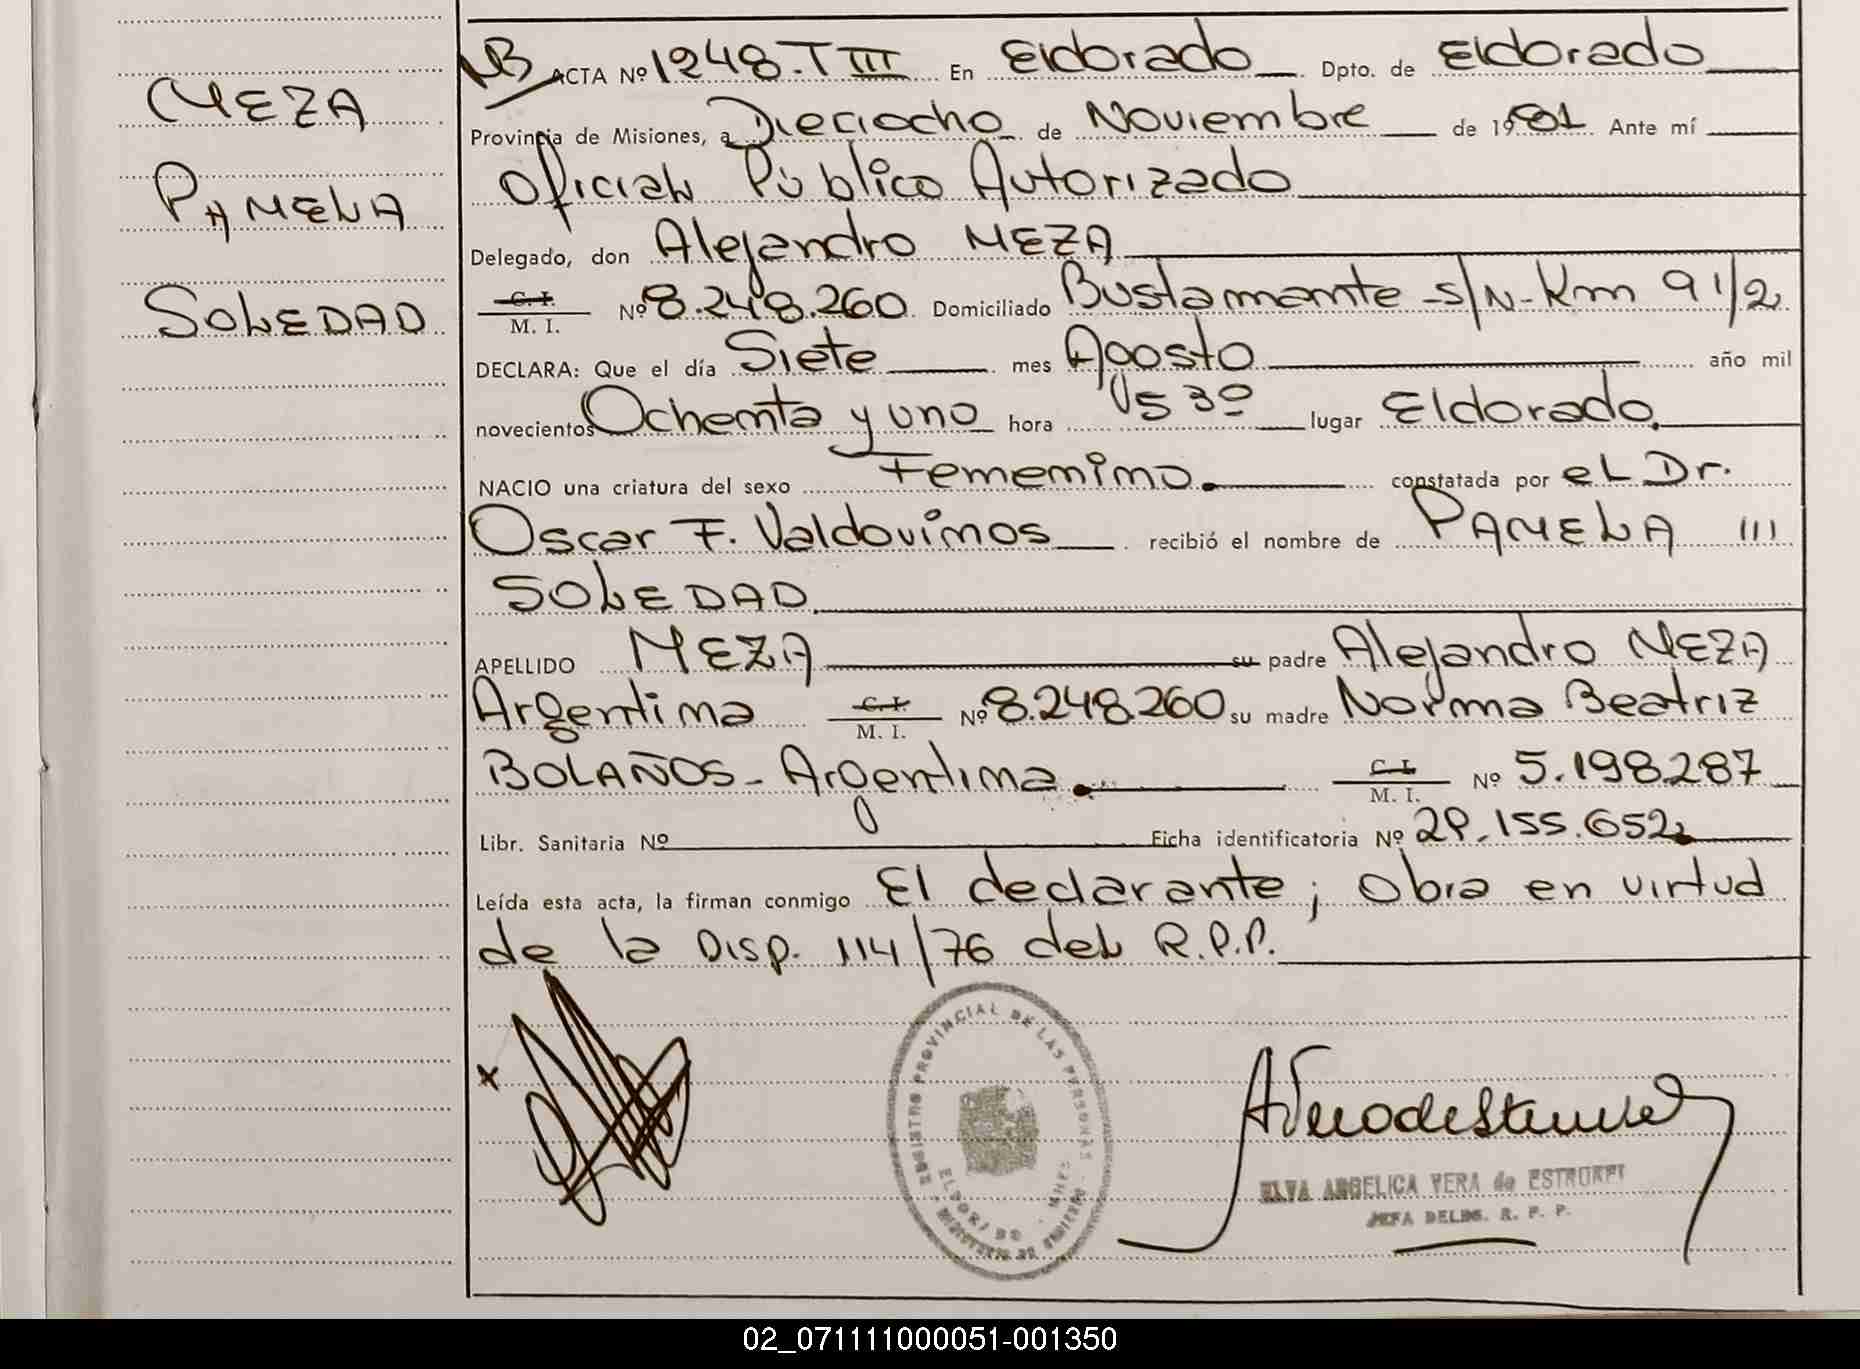 MEZA
PAMELA
SOLEDAD
NB ACTA Nº 1248.T III En Eldorado Dpto. de Eldorado
Provincia de Misiones, a Dieciocho de Noviembre de 1981 Ante mí
Oficial Público Autorizado
Delegado, don Alejandro MEZA
C. I.
M. I. Nº 8.248.260 Domiciliado Bustamante -s/N- Km 9 1/2
DECLARA: Que el día Siete mes Agosto año mil
novecientos Ochenta y uno hora 5 30 lugar Eldorado.
NACIO una criatura del sexo Femenino. constatada por el Dr.
Oscar F. Valdovinos recibió el nombre de PAMELA
SOLEDAD.
APELLIDO MEZA su padre Alejandro MEZA
Argentina C. I. M. I. Nº 8.248.260 su madre Norma Beatriz
BOLAÑOS - Argentina. C. I. M. I. Nº 5.198.287
Libr. Sanitaria Nº Ficha identificatoria Nº 29.155.652
Leída esta acta, la firman conmigo El declarante; Obra en virtud
de la Disp. 114/76 del R.P.P.
x
REGISTRO PROVINCIAL DE LAS PERSONAS
ELDORADO - MNES.
MINISTERIO DE GOBIERNO
ELVA ANGELICA VERA de
JEFA DELEG. R. P. P.
02_071111000051-001350